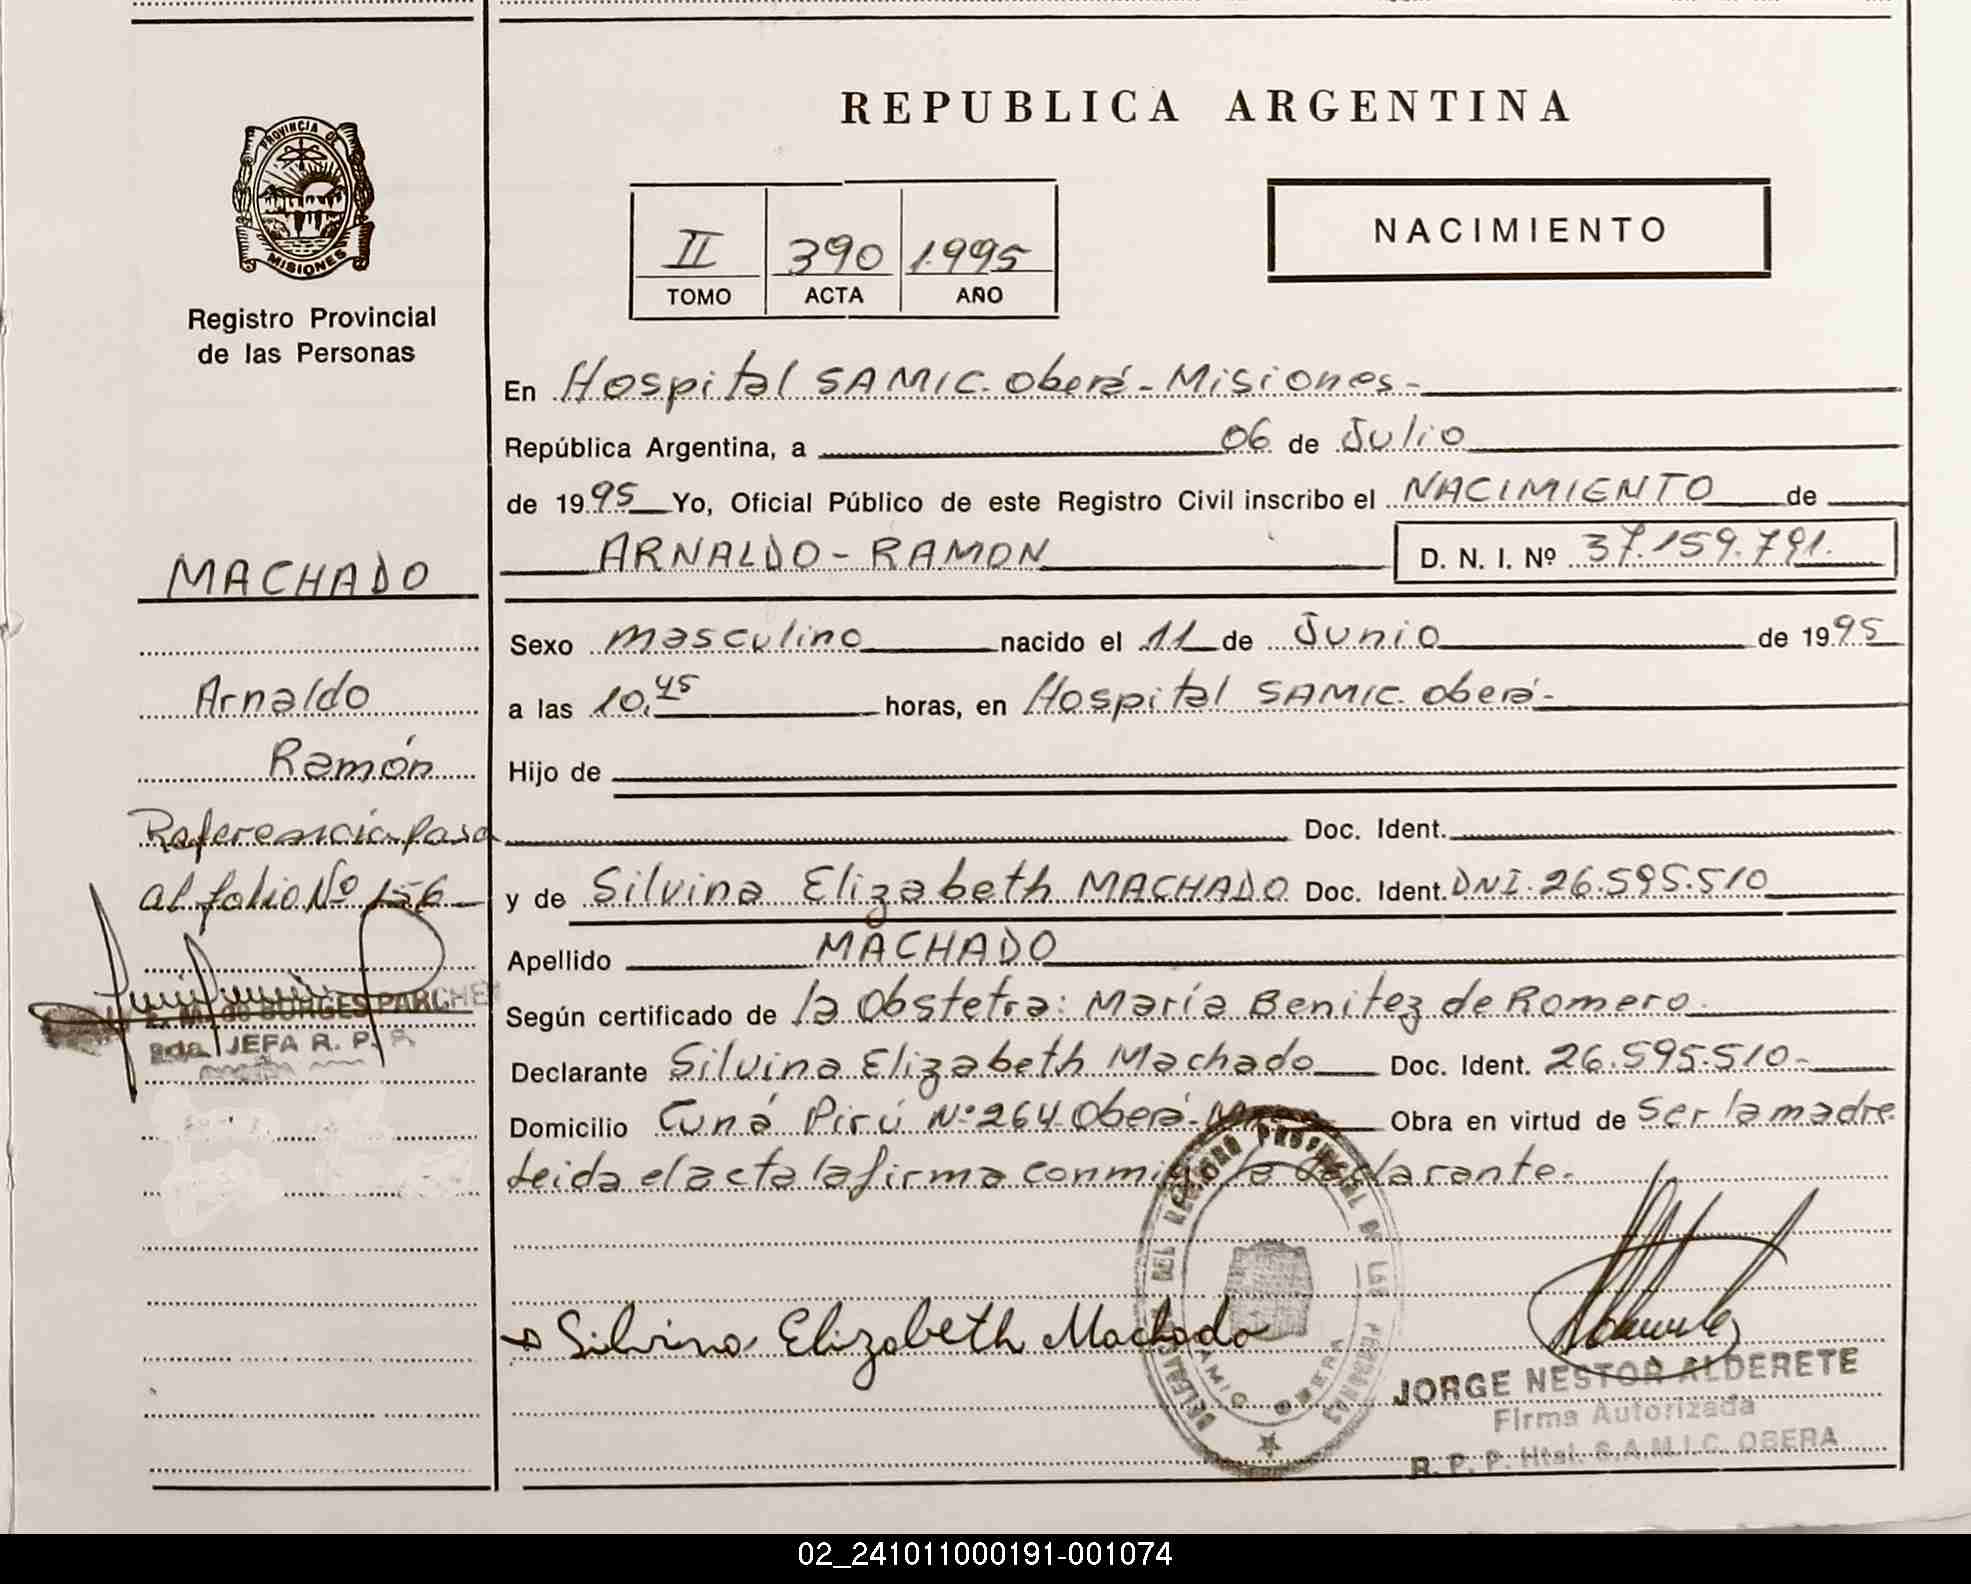 REPUBLICA ARGENTINA
PROVINCIA DE
MISIONES
Registro Provincial
de las Personas
NACIMIENTO
II 390 1995
TOMO ACTA AÑO
En Hospital SAMIC. Oberá - Misiones -
República Argentina, a 06 de Julio
de 1995 Yo, Oficial Público de este Registro Civil inscribo el NACIMIENTO de
ARNALDO - RAMON D. N. I. Nº 37.159.791.
Sexo masculino nacido el 11 de Junio de 1995
a las 10,45 horas, en Hospital SAMIC. Oberá -
Hijo de
Doc. Ident.
y de Silvina Elizabeth MACHADO Doc. Ident. DNI. 26.595.510
Apellido MACHADO
Según certificado de la Obstetra: María Benitez de Romero.
Declarante Silvina Elizabeth Machado Doc. Ident. 26.595.510 -
Domicilio Cuná Pirú Nº 264 Oberá - Obra en virtud de ser la madre
Leida el acta la firma conmigo la declarante.
Silvina Elizabeth Machado
JORGE NESTOR ALDERETE
Firma Autorizada
R. P. P. Htal. S.A.M.I.C. OBERA
DEL REGISTRO PROVINCIAL DE LAS PERSONAS
SAMIC OBERA
MACHADO
Arnaldo
Ramón
Referencia pasa
al folio Nº 156
BORGES PARCHEN
JEFA R. P. P.
02_241011000191-001074